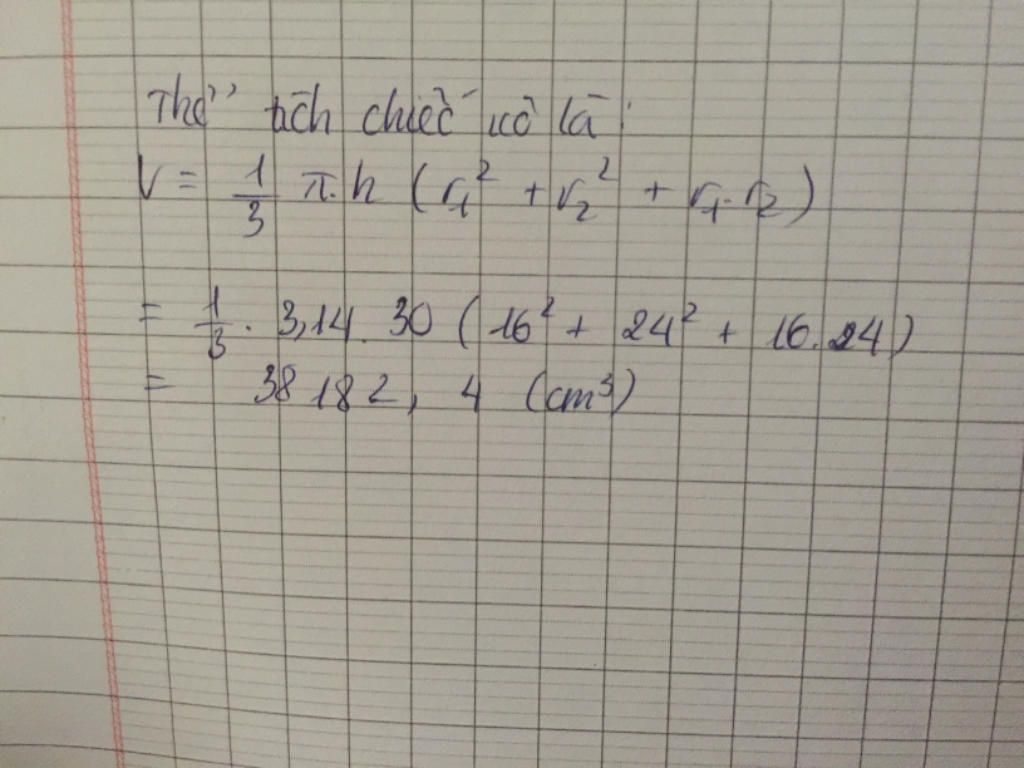 Thể tích chiếc xô là:
V = 1/3 π.h (r₁² + r₂² + r₁.r₂)
= 1/3 . 3,14 . 30 (16² + 24² + 16.24)
= 38182,4 (cm³)